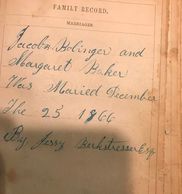 FAMILY RECORD.
MARRIAGES.
Jacob Bolinger and
Margaret Baker
Was Maried December
The 25 1866
By Jerry Berkstresser Esqr